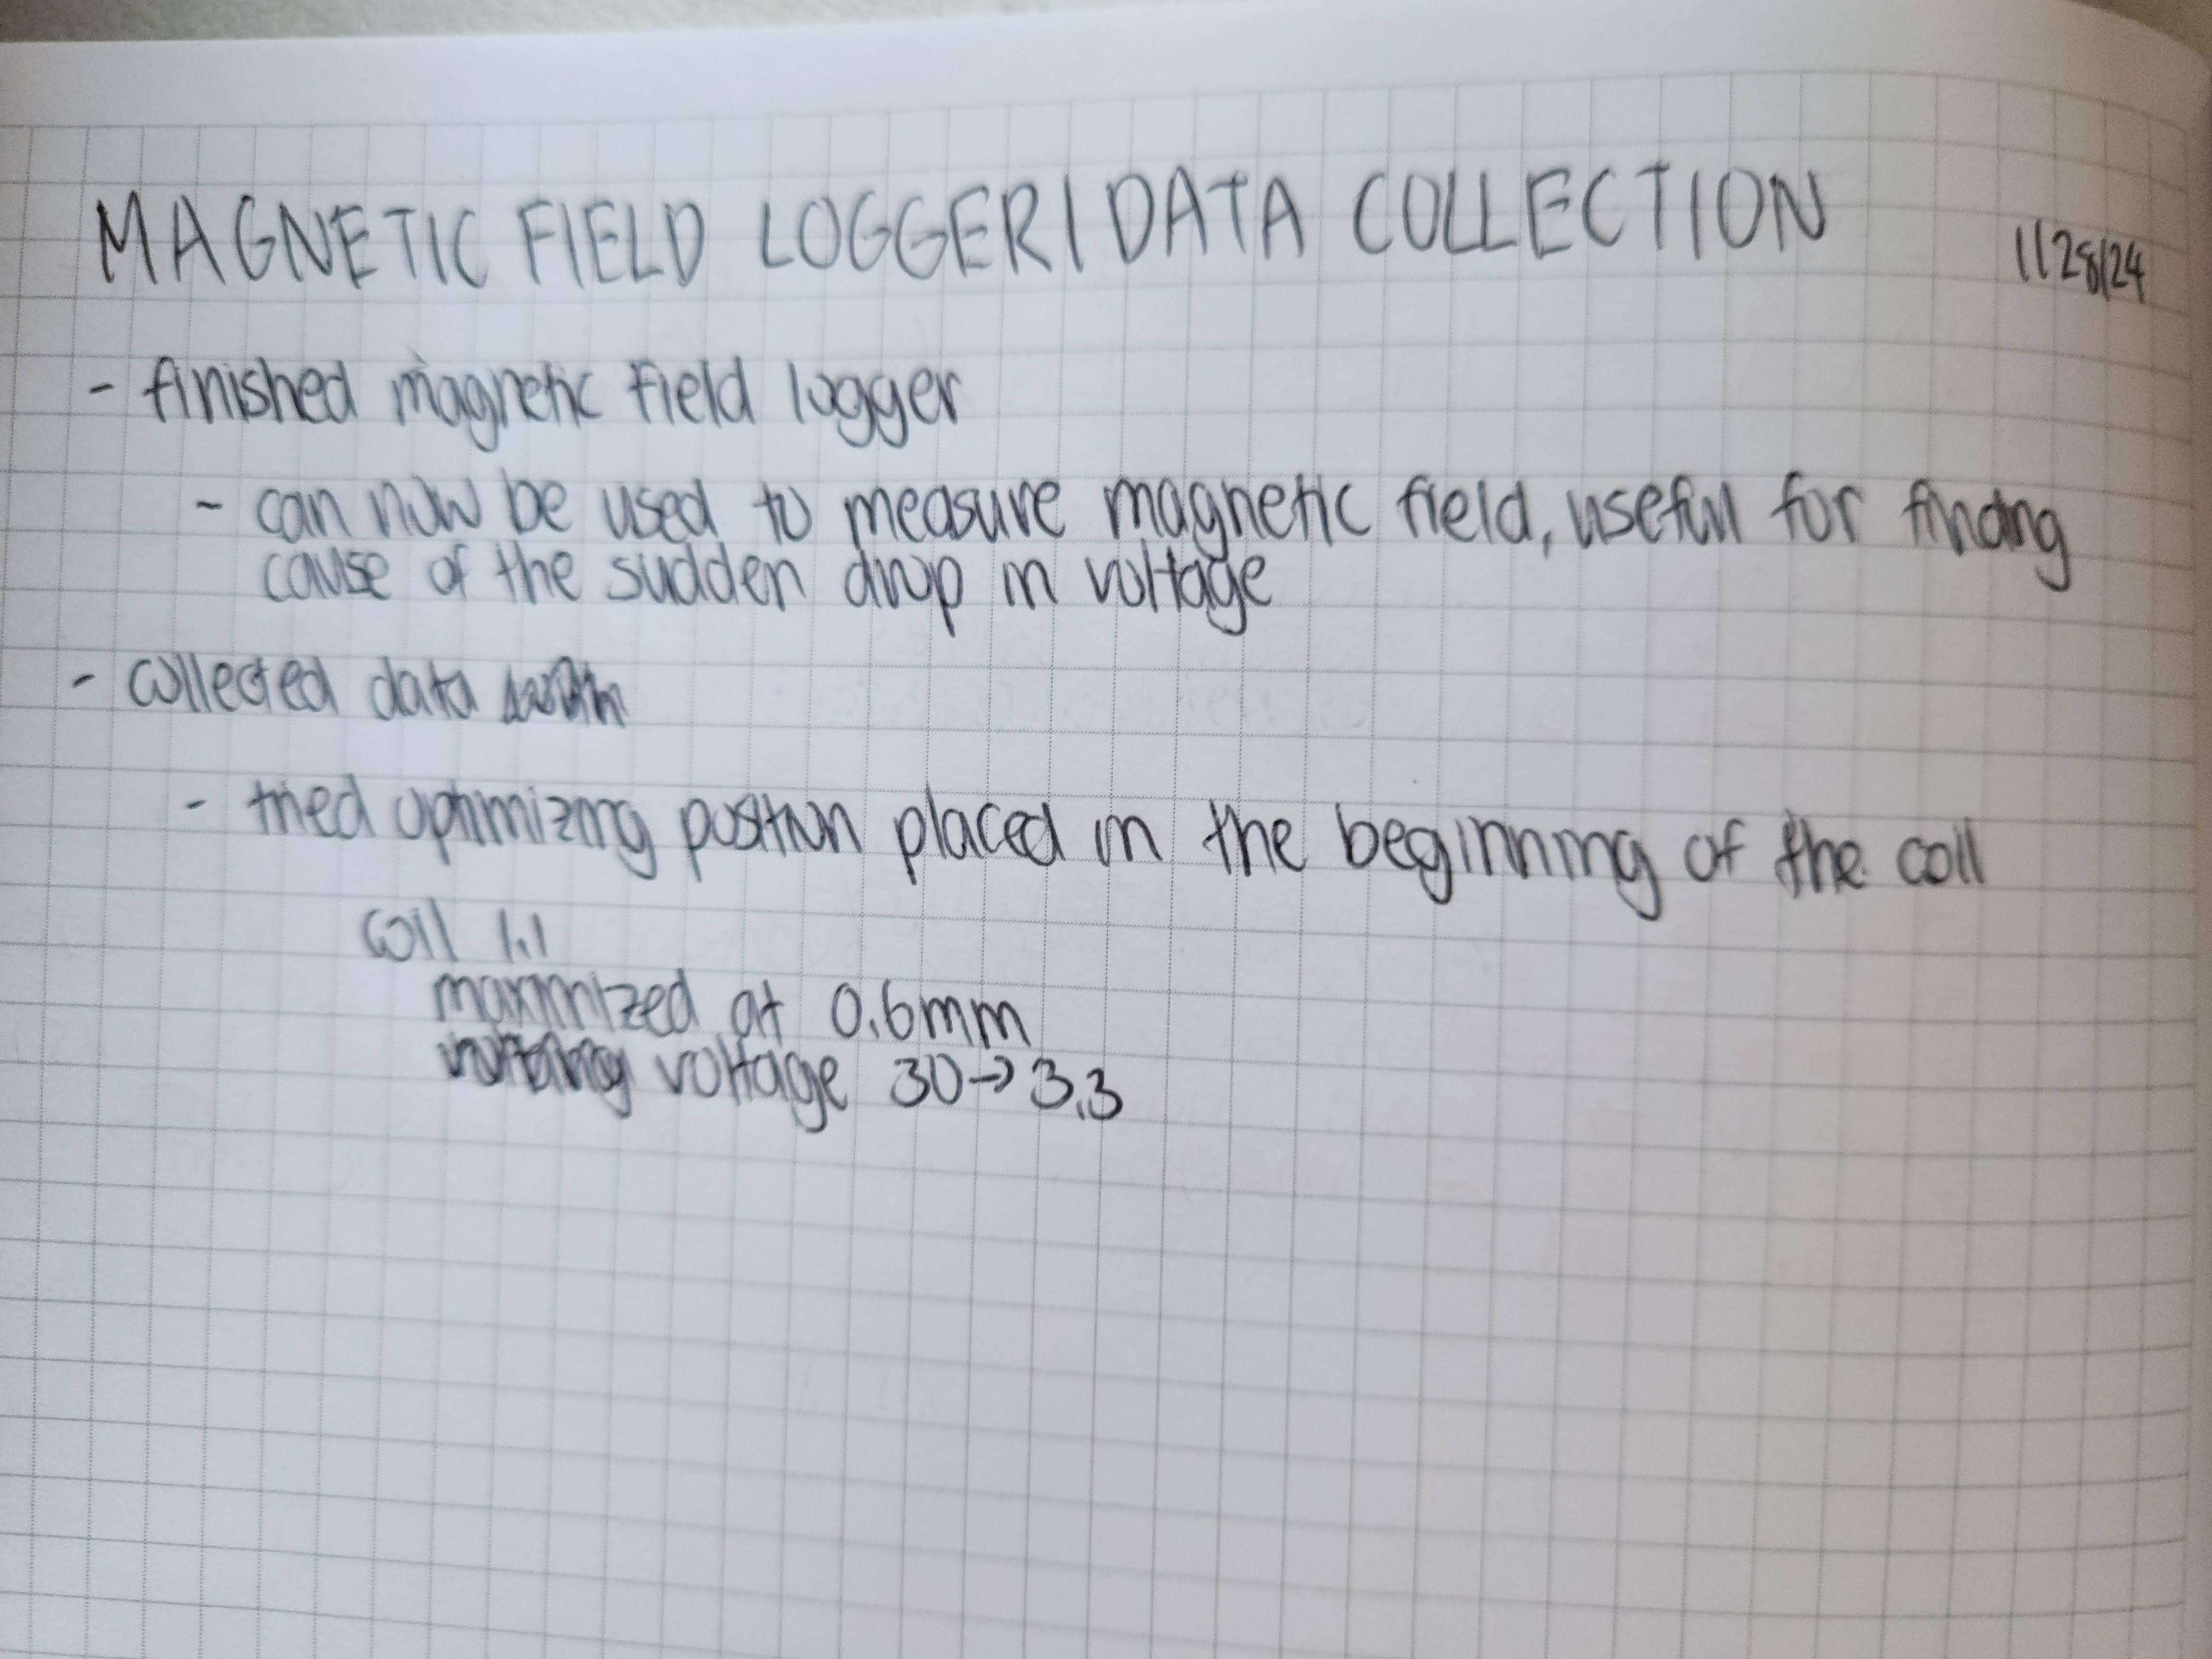 MAGNETIC FIELD LOGGER/DATA COLLECTION
1/28/24
- finished magnetic field logger
- can now be used to measure magnetic field, useful for finding
cause of the sudden drop in voltage
- collected data
- tried optimizing position placed in the beginning of the coil
coil 1.1
maximized at 0.6mm
voltage 30→3.3